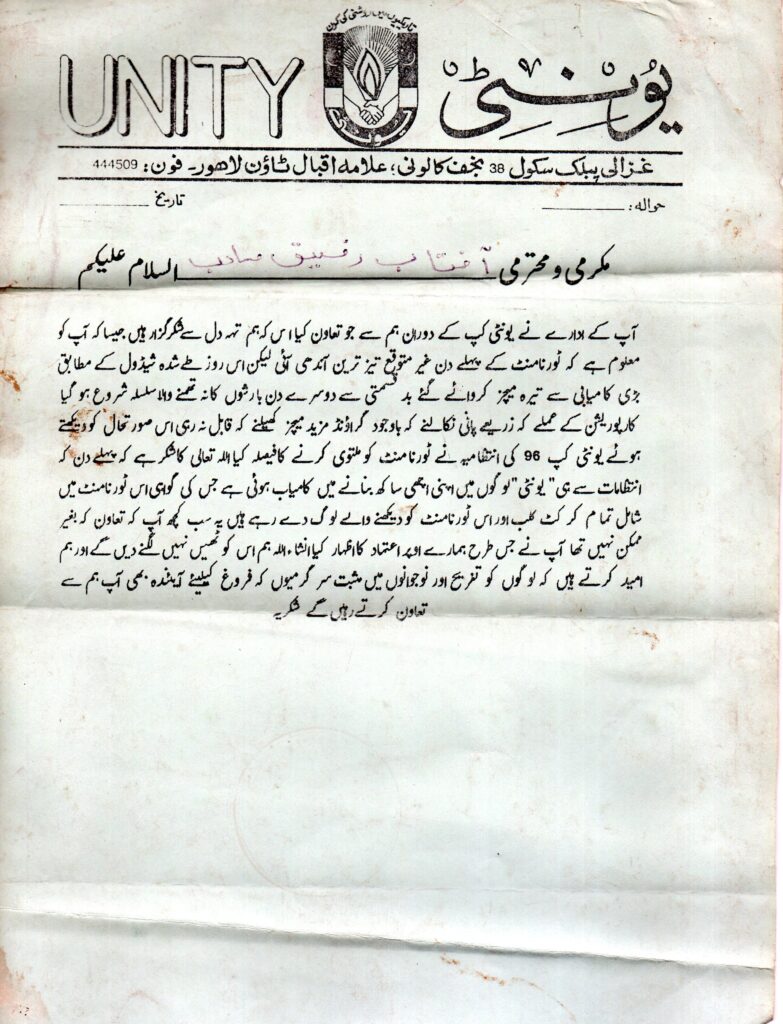 تاریکیوں میں روشنی کی کرن
UNITY
یونٹی
یونٹی
غزالی پبلک سکول 38 نجف کالونی؛ علامہ اقبال ٹاؤن لاہور۔ فون: 444509
حوالہ: ________ تاریخ ________
مکرمی و محترمی آفتاب رفیق صاحب السلام علیکم
آپ کے ادارے نے یونٹی کپ کے دوران ہم سے جو تعاون کیا اس کہ ہم تہہ دل سے شکر گزار ہیں جیسا کہ آپ کو
معلوم ہے کہ ٹورنامنٹ کے پہلے دن غیر متوقع تیز ترین آندھی آئی لیکن اس روز طے شدہ شیڈول کے مطابق
بڑی کامیابی سے تیرہ میچز کروائے گئے بد قسمتی سے دوسرے دن بارشوں کا نہ تھمنے والا سلسلہ شروع ہو گیا
کارپوریشن کے عملے کہ زریعے پانی نکالنے کہ باوجود گراؤنڈ مزید میچز کھیلنے کہ قابل نہ رہی اس صورتحال کو دیکھتے
ہوئے یونٹی کپ 96 کی انتظامیہ نے ٹورنامنٹ کو ملتوی کرنے کا فیصلہ کیا اللہ تعالی کا شکر ہے کہ پہلے دن کہ
انتظامات سے ہی "یونٹی" لوگوں میں اپنی اچھی ساکھ بنانے میں کامیاب ہوئی ہے جس کی گواہی اس ٹورنامنٹ میں
شامل تمام کرکٹ کلب اور اس ٹورنامنٹ کو دیکھنے والے لوگ دے رہے ہیں یہ سب کچھ آپ کہ تعاون کہ بغیر
ممکن نہیں تھا آپ نے جس طرح ہمارے اوپر اعتماد کا اظہار کیا انشاء اللہ ہم اس کو ٹھیس نہیں لگنے دیں گے اور ہم
امید کرتے ہیں کہ لوگوں کو تفریح اور نوجوانوں میں مثبت سرگرمیوں کہ فروغ کیلیئے آیندہ بھی آپ ہم سے
تعاون کرتے رہیں گے شکریہ